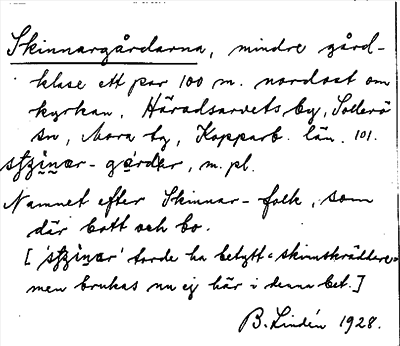 Skinnargårdarna, mindre gård-
klase ett par 100 m. nordost om
kyrkan, Häradsarvets by, Sollerö
sn, Mora tg, Kopparb. län. 101.
gårdar, m. pl.
Namnet efter Skinnar-folk, som
där bott och bo.
[ torde ha betytt "skinnskräddare"
men brukas nu ej här i denna bet.]
B. Lindén 1928.